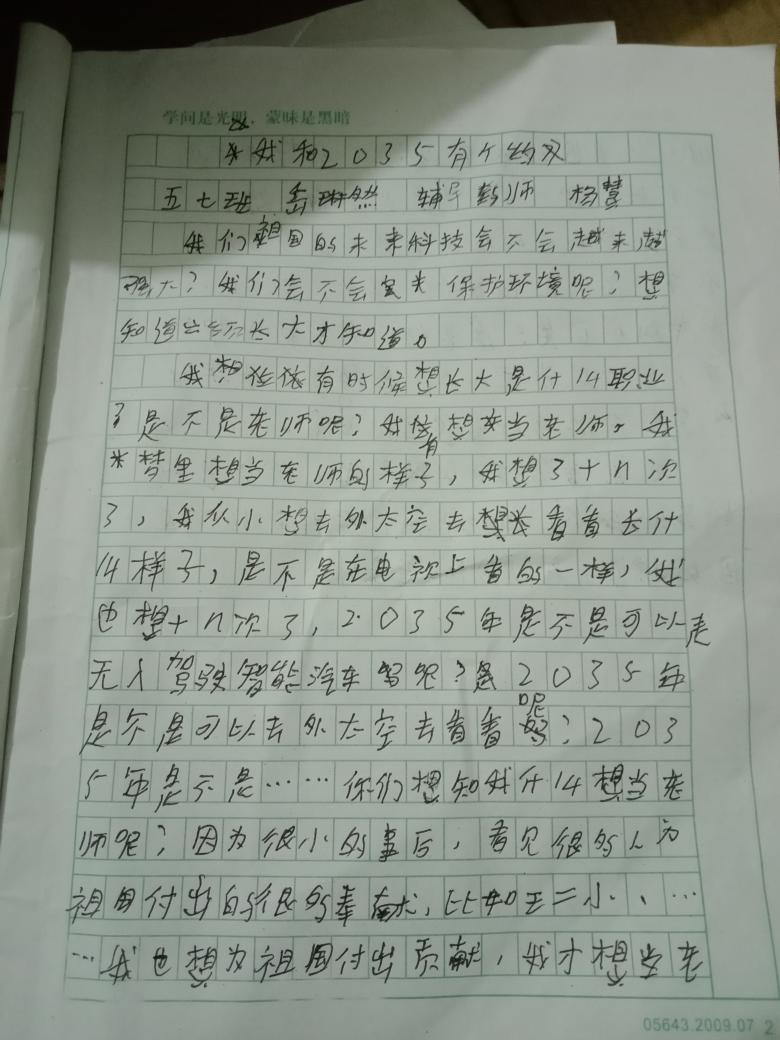 学问是光明，蒙昧是黑暗
我和2035有个约又
五七班 岳琳然 辅导教师 杨慧
我们祖国的未来科技会不会越来越
强大？我们会不会 保护环境呢？想
知道 长大才知道。
我想 有时候想长大是什14职业
了是不是老师呢？我 想 当老师。我
米梦里有想当老师的样子，我想了十n次
了，我从小想去外太空去 看看长什
14样子，是不是在电 上看的一样，我
也想十n次了，2035年是不是可以走
无人驾驶智能汽车 呢？ 2035年
是不是可以去外太空去看看呢？203
5年是不是……你们想知我什14想当老
师呢？因为很小的事后，看见很的人为
祖国付出的很的奉献，比如王二小、…
…我也想为祖国付出贡献，我才想当老
05643.2009.07 2